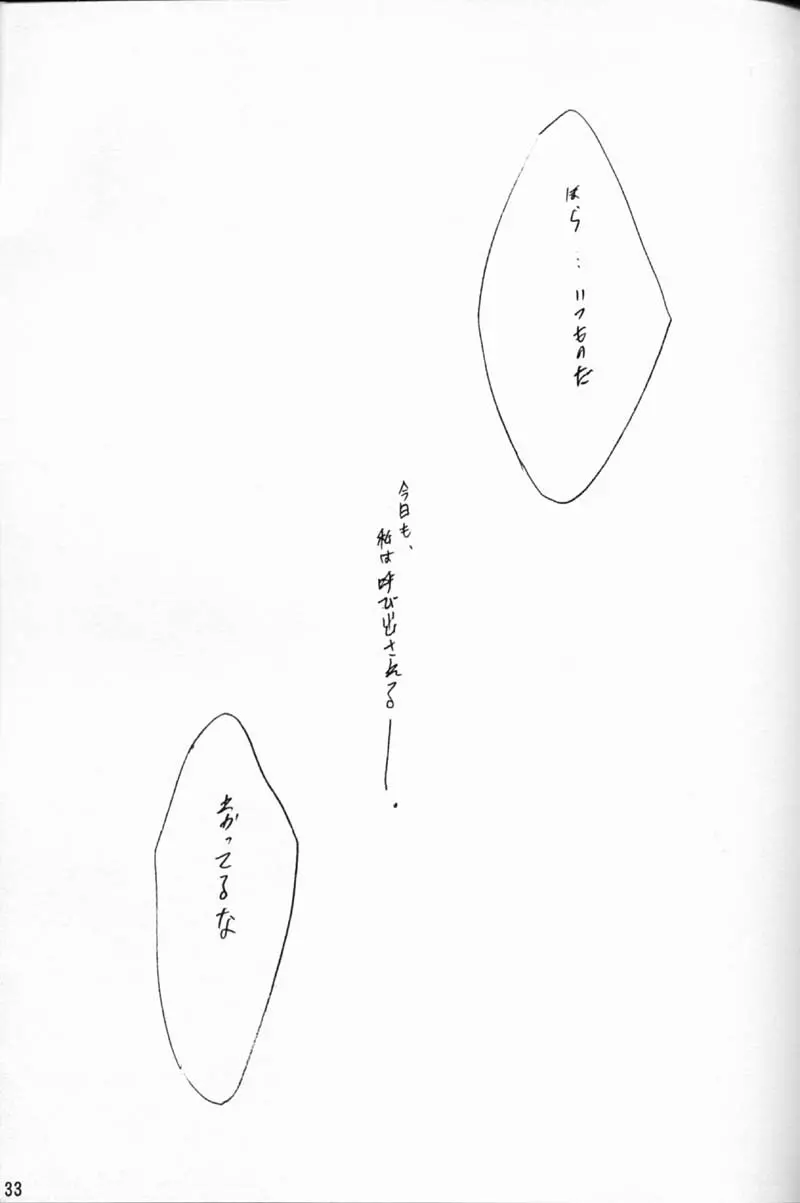 ほら…いつものだ
今日も、
私は呼び出される——.
上がってるな
33